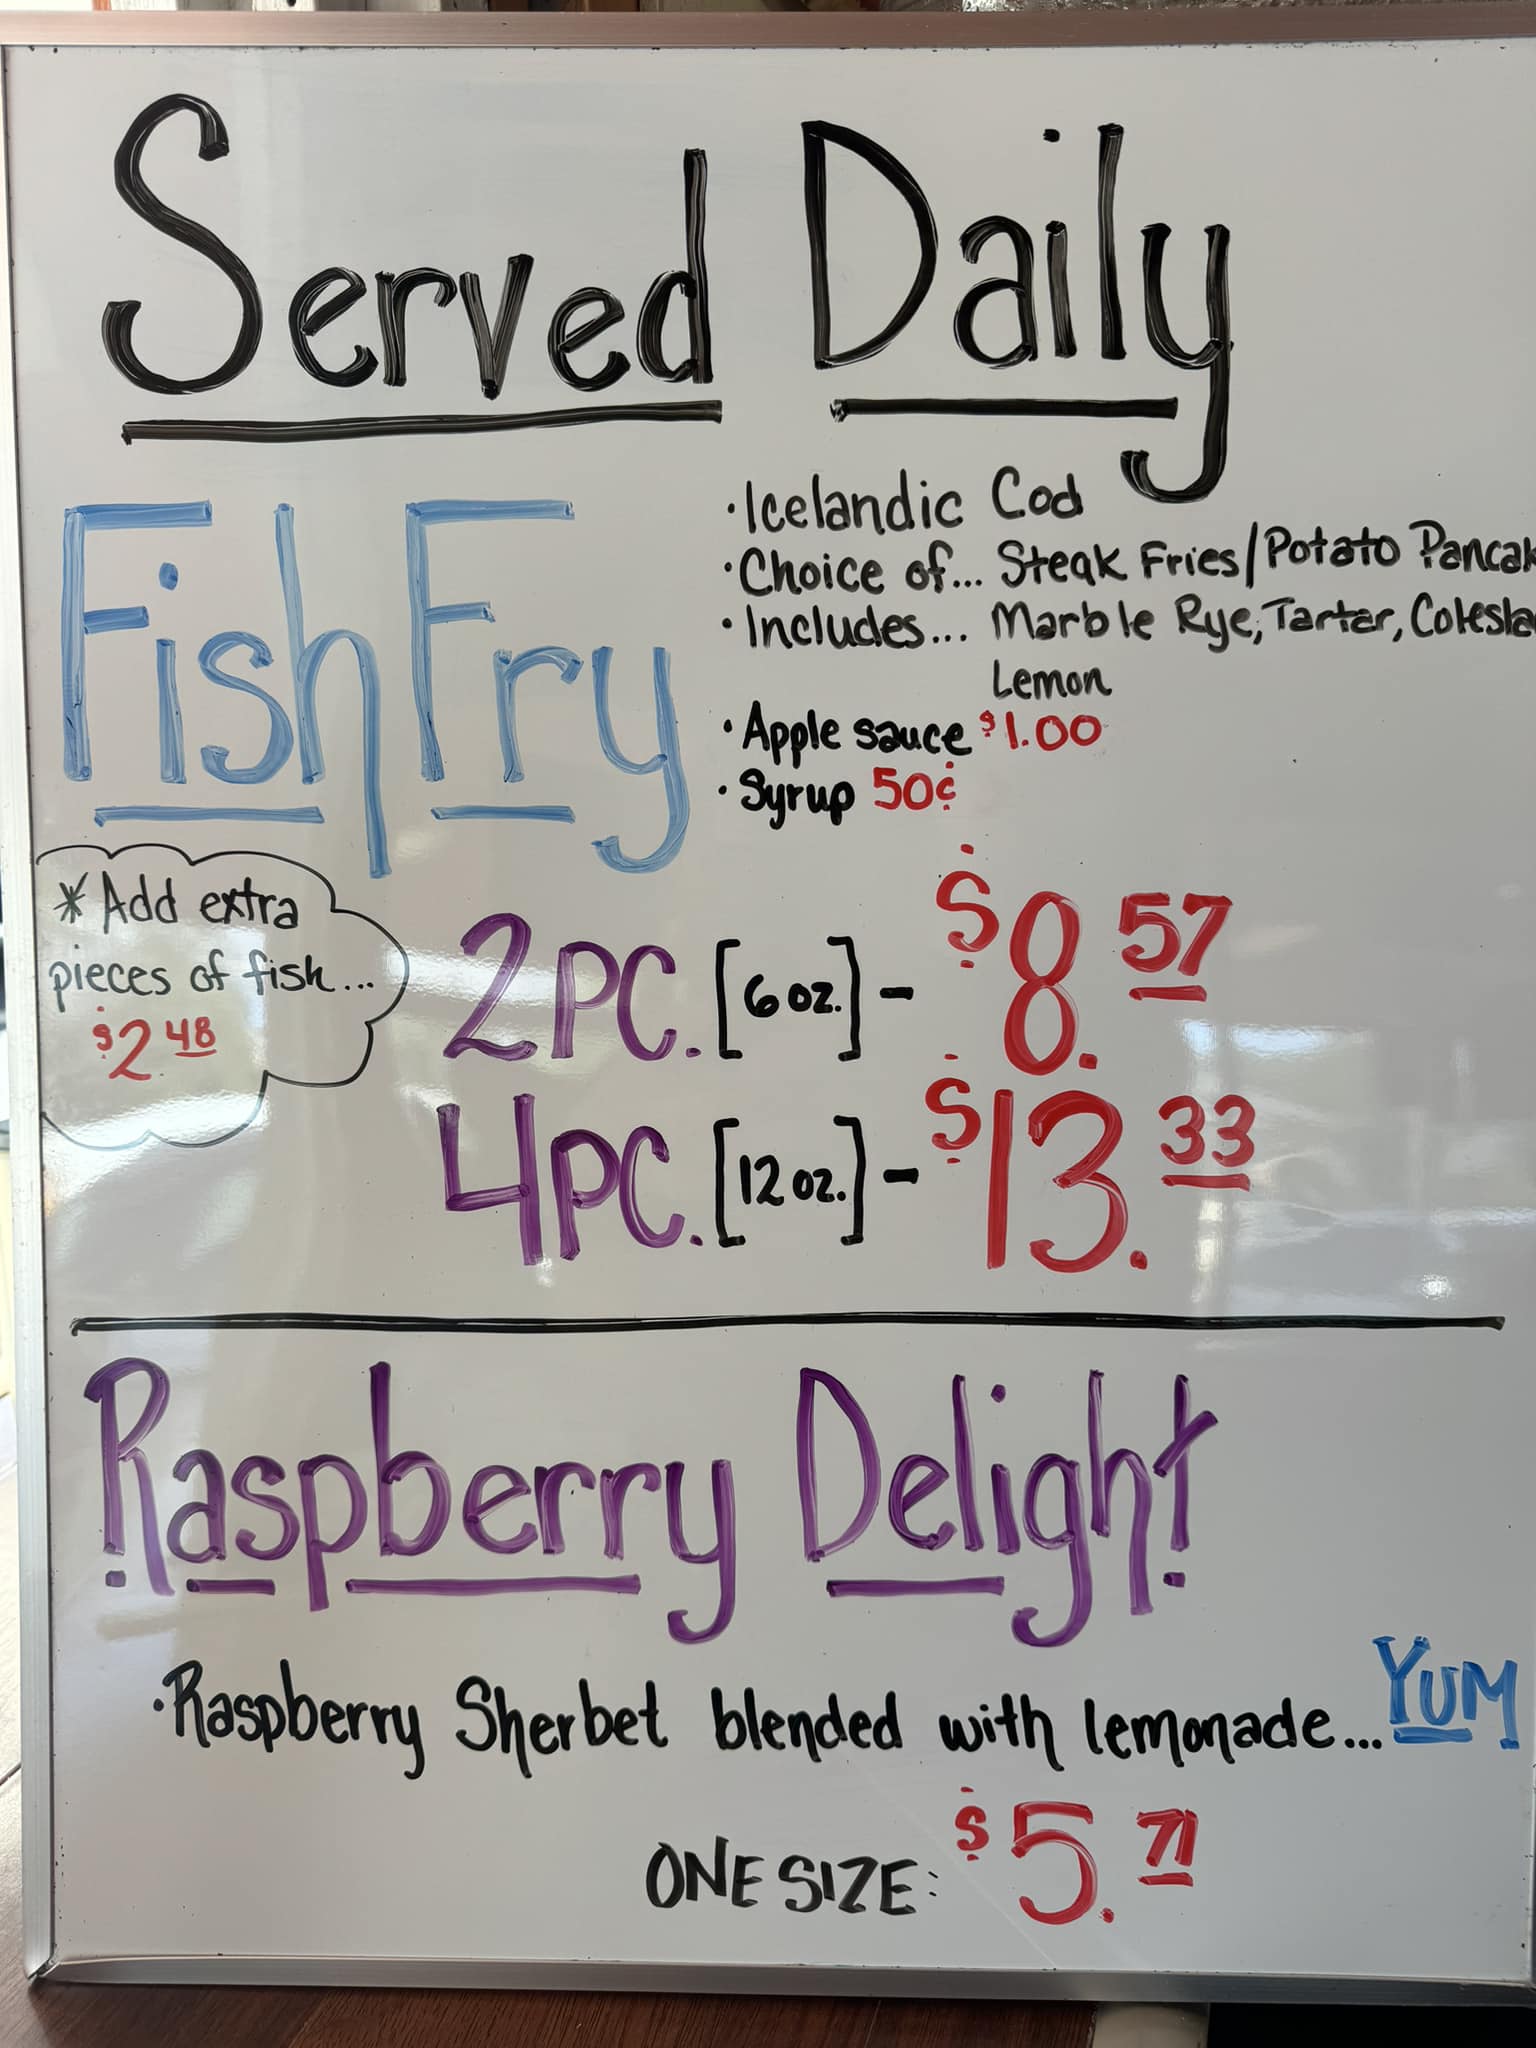 Served Daily
Fish Fry
· Icelandic Cod
· Choice of... Steak Fries/Potato Pancak
· Includes... Marble Rye, Tartar, Colesla
Lemon
· Apple sauce $1.00
· Syrup 50¢
* Add extra
pieces of fish...
$2.48
2PC. [6 oz.] - $8.57
4PC. [12 oz.] - $13.33
Raspberry Delight
· Raspberry Sherbet blended with lemonade... YUM
ONE SIZE: $5.71